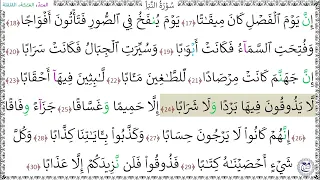 سُورَةُ النَّبَإِ
إِنَّ يَوْمَ الْفَصْلِ كَانَ مِيقَٰتًا (17) يَوْمَ يُنفَخُ فِي الصُّورِ فَتَأْتُونَ أَفْوَاجًا (18)
وَفُتِحَتِ السَّمَآءُ فَكَانَتْ أَبْوَٰبًا (19) وَسُيِّرَتِ الْجِبَالُ فَكَانَتْ سَرَابًا (20)
إِنَّ جَهَنَّمَ كَانَتْ مِرْصَادًا (21) لِّلطَّٰغِينَ مَـَٔابًا (22) لَّٰبِثِينَ فِيهَآ أَحْقَابًا (23)
لَا يَذُوقُونَ فِيهَا بَرْدًا وَلَا شَرَابًا (24) إِلَّا حَمِيمًا وَغَسَّاقًا (25) جَزَآءً وِفَاقًا (26)
إِنَّهُمْ كَانُوا لَا يَرْجُونَ حِسَابًا (27) وَكَذَّبُوا بِـَٔايَٰتِنَا كِذَّابًا (28) وَكُلَّ
شَيْءٍ أَحْصَيْنَٰهُ كِتَٰبًا (29) فَذُوقُوا فَلَن نَّزِيدَكُمْ إِلَّا عَذَابًا (30)